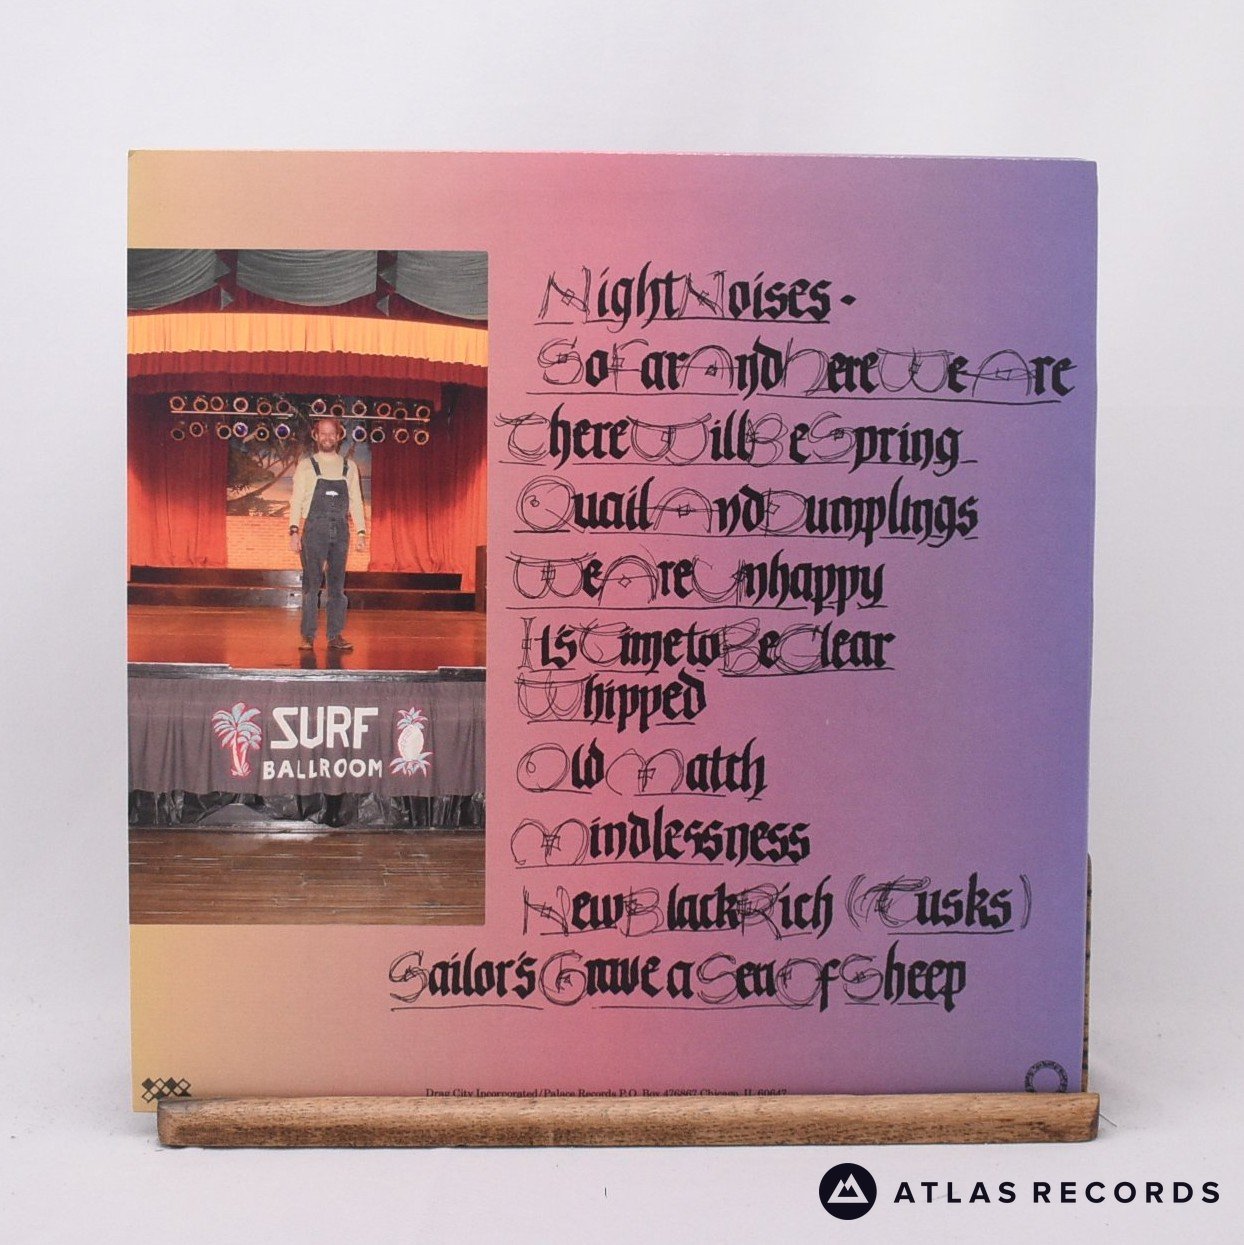 Night Noises.
So Far And Here We Are
There Will Be Spring
Quail And Dumplings
We Are Unhappy
It's Time to Be Clear
Whipped
Old Match
Mindlessness
New Black Rich (Tusks)
Sailor's Grave a Sea Of Sheep
SURF
BALLROOM
Drag City Incorporated/Palace Records P.O. Box 476867 Chicago, IL 60647
ATLAS RECORDS